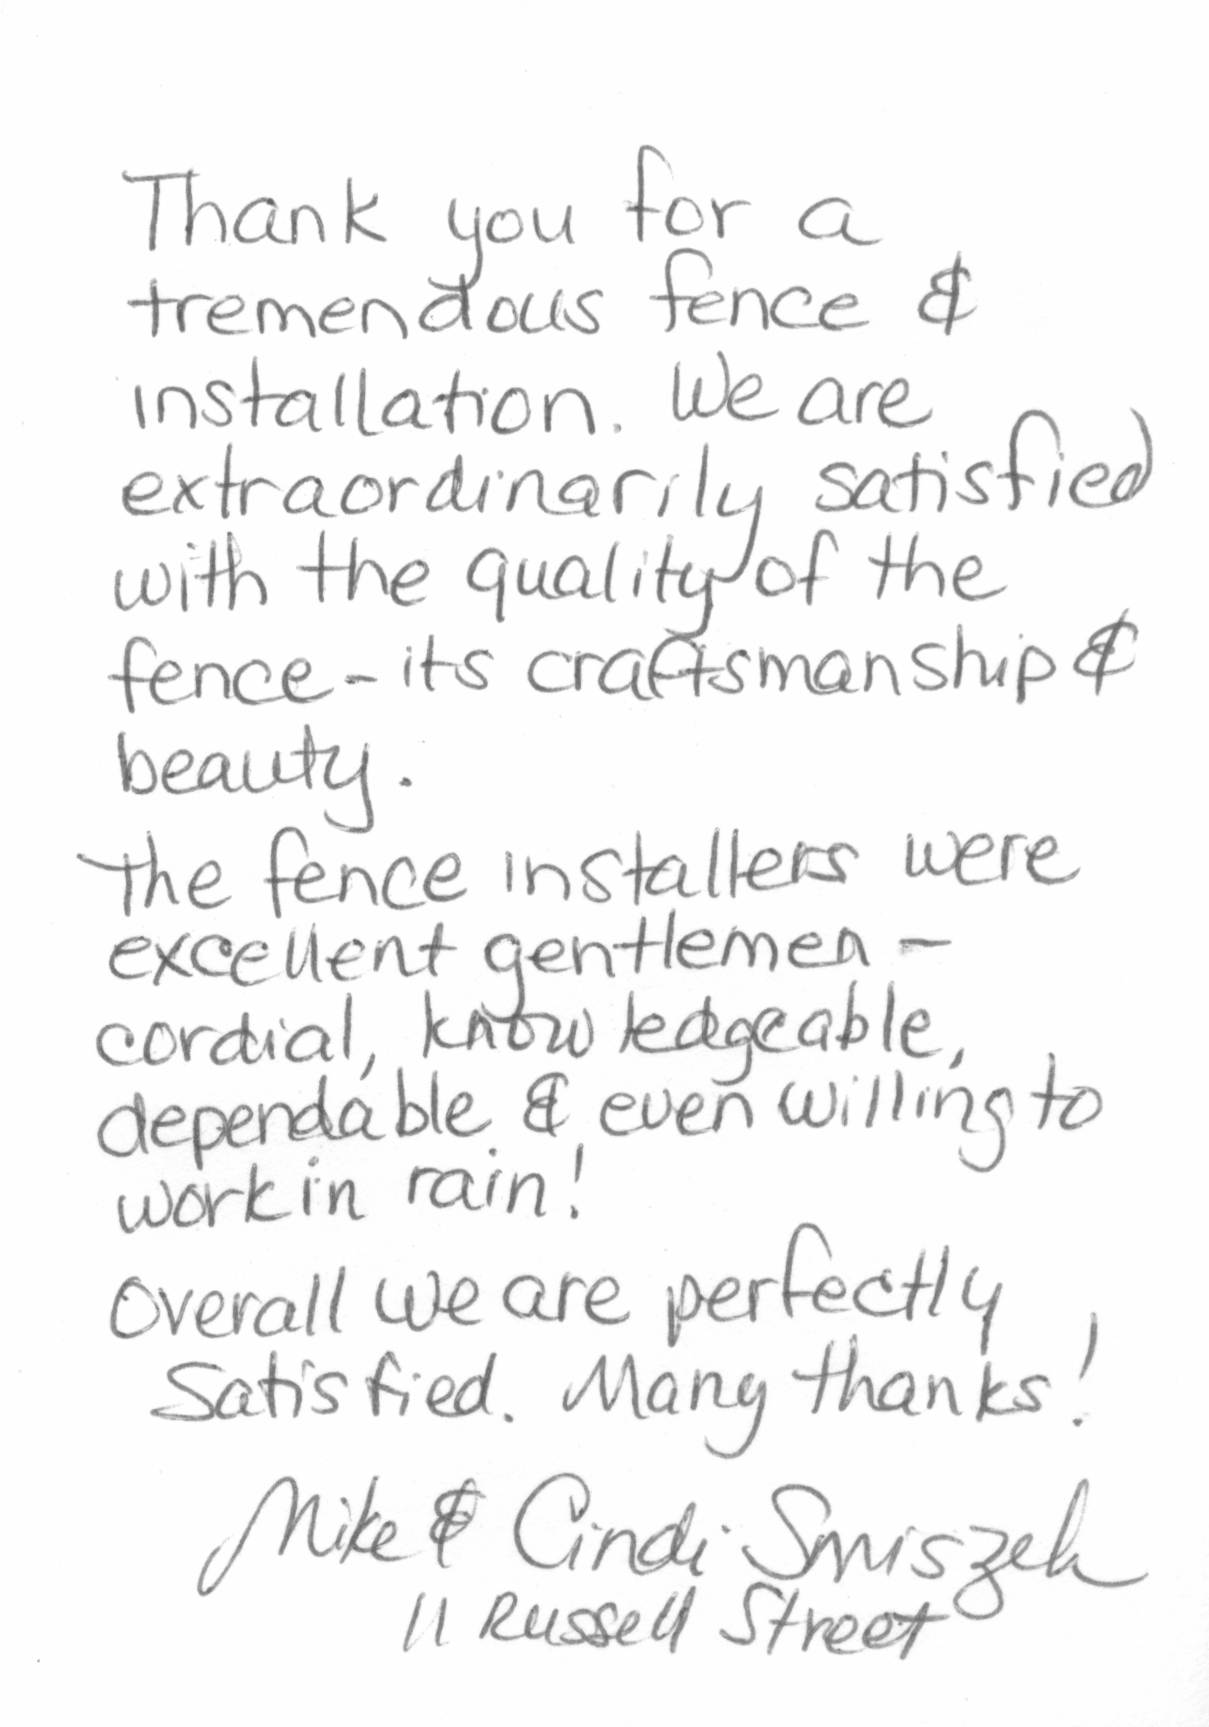 Thank you for a
tremendous fence &
installation. We are
extraordinarily satisfied
with the quality of the
fence - its craftsmanship &
beauty.
The fence installers were
excellent gentlemen -
cordial, knowledgeable,
dependable & even willing to
work in rain!
Overall we are perfectly
satisfied. Many thanks!
Mike & Cindi Smiszek
11 Russell Street